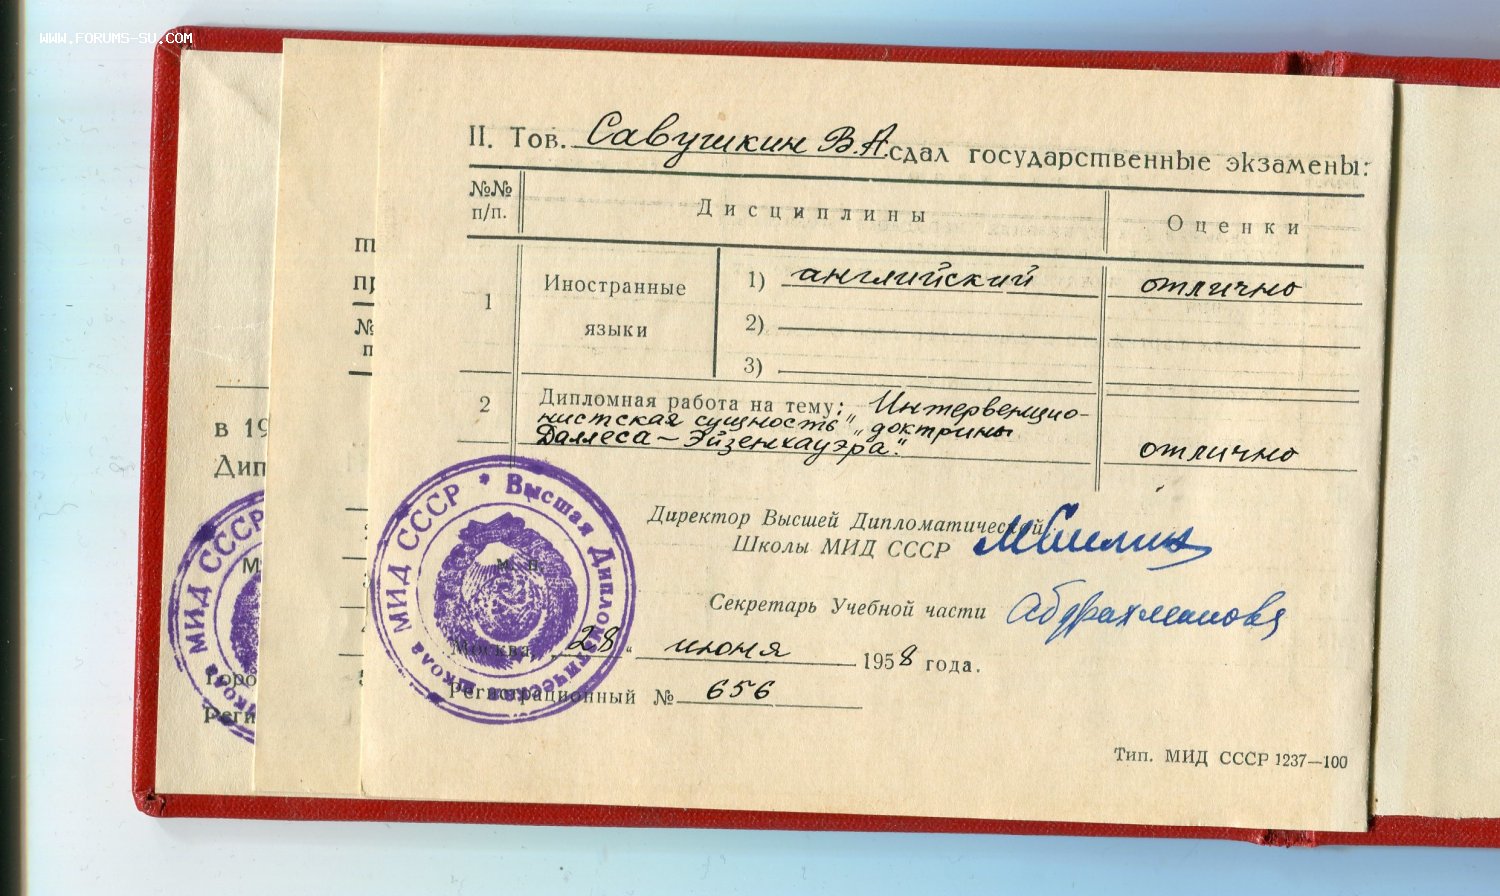 WWW.FORUMS-SU.COM
II. Тов. Савушкин В.А. сдал государственные экзамены:
№№ п/п. Дисциплины Оценки
1 Иностранные языки 1) английский отлично
2)
3)
2 Дипломная работа на тему: „Интервенцио-
нистская сущность „доктрины
Даллеса—Эйзенхауэра". отлично
Директор Высшей Дипломатической
Школы МИД СССР
Секретарь Учебной части Абдрахманова
М. П.
Москва, 28 " июня 1958 года.
Регистрационный № 656
Тип. МИД СССР 1237—100
Высшая Дипломатическая школа МИД СССР
в 19
Дип
Горо
Реги
школа МИД СССР